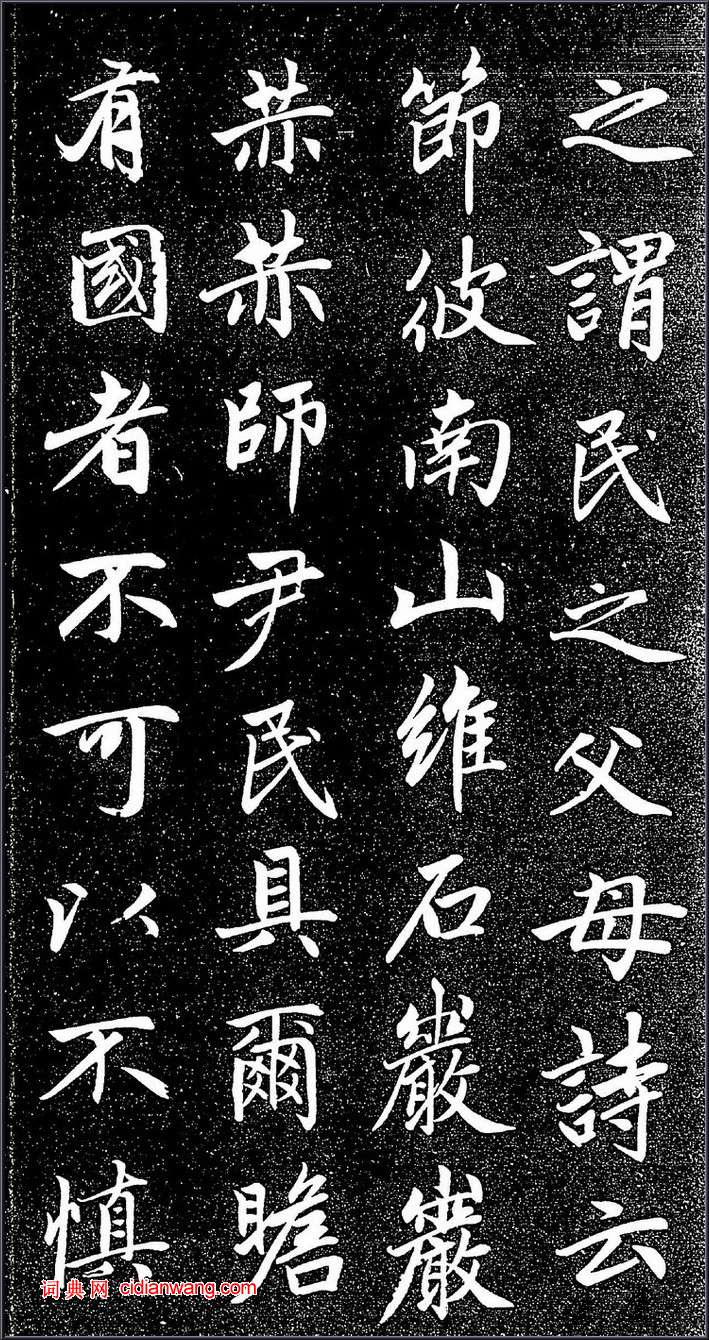 之謂民之父母詩云
節彼南山維石巖巖
赫赫師尹民具爾瞻
有國者不可以不慎
词典网 cidianwang.com